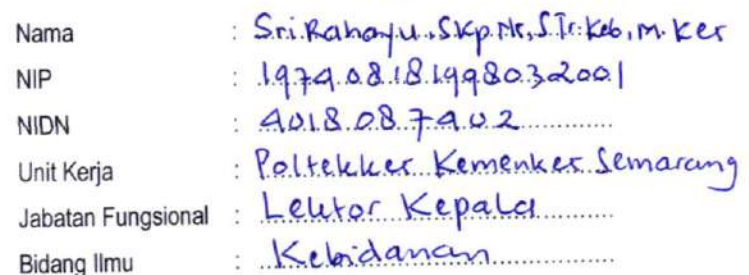 Nama : Sri Rahayu, SKp.Ns, S.Tr.Keb, M.Kes
NIP : 197408181998032001
NIDN : 4018087402
Unit Kerja : Poltekkes Kemenkes Semarang
Jabatan Fungsional : Lektor Kepala
Bidang Ilmu : Kebidanan